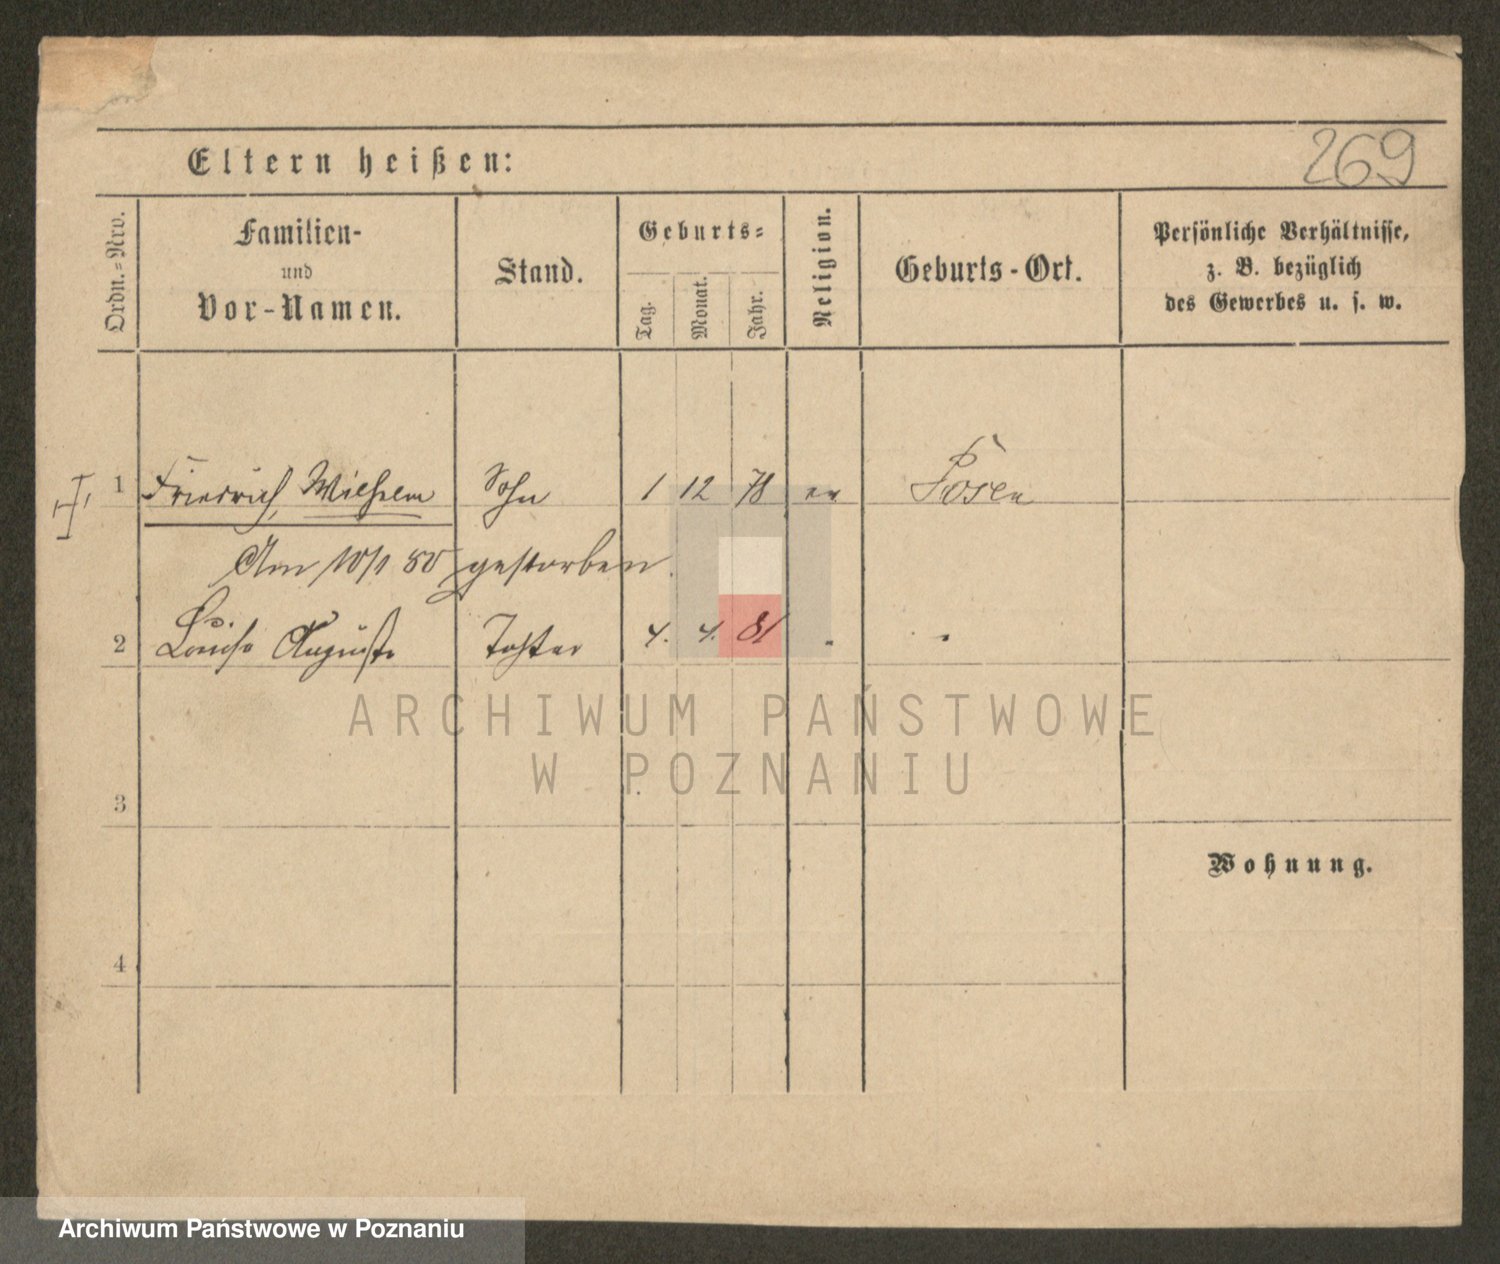 269
Eltern heißen:
Ordn.-Nro.
Familien-
und
Vor-Namen.
Stand.
Geburts-
Tag.
Monat.
Jahr.
Religion.
Geburts-Ort.
Persönliche Verhältnisse,
z. B. bezüglich
des Gewerbes u. s. w.
1 Friedrich, Wilhelm Sohn 1 12 78 ev Posen
Am 10/1 80 gestorben
2 Louise Auguste Tochter 4. 4. 81 " "
3
Wohnung.
4
ARCHIWUM PAŃSTWOWE
W POZNANIU
Archiwum Państwowe w Poznaniu